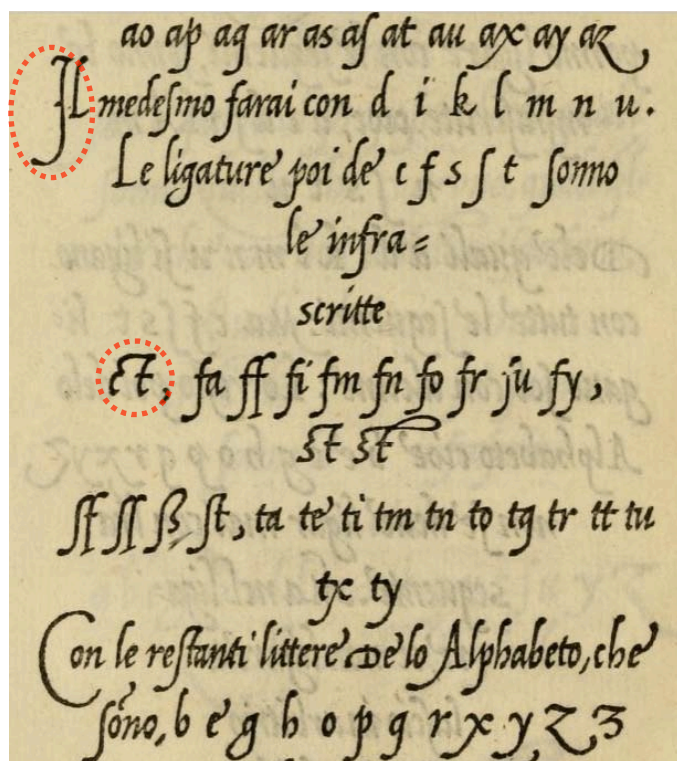 ao ap aq ar as aſ at au ax ay az
Il medeſmo farai con d i k l m n u.
Le ligature poi de c f s ſ t ſonno
le infra =
scritte
ct, fa ff fi fm fn fo fr fu fy,
st st
ſf ſſ ß ſt, ta te ti tm tn to tq tr tt tu
tx ty
Con le reſtanti littere de lo Alphabeto, che
ſōno, b e g h o p q r x y z ʒ